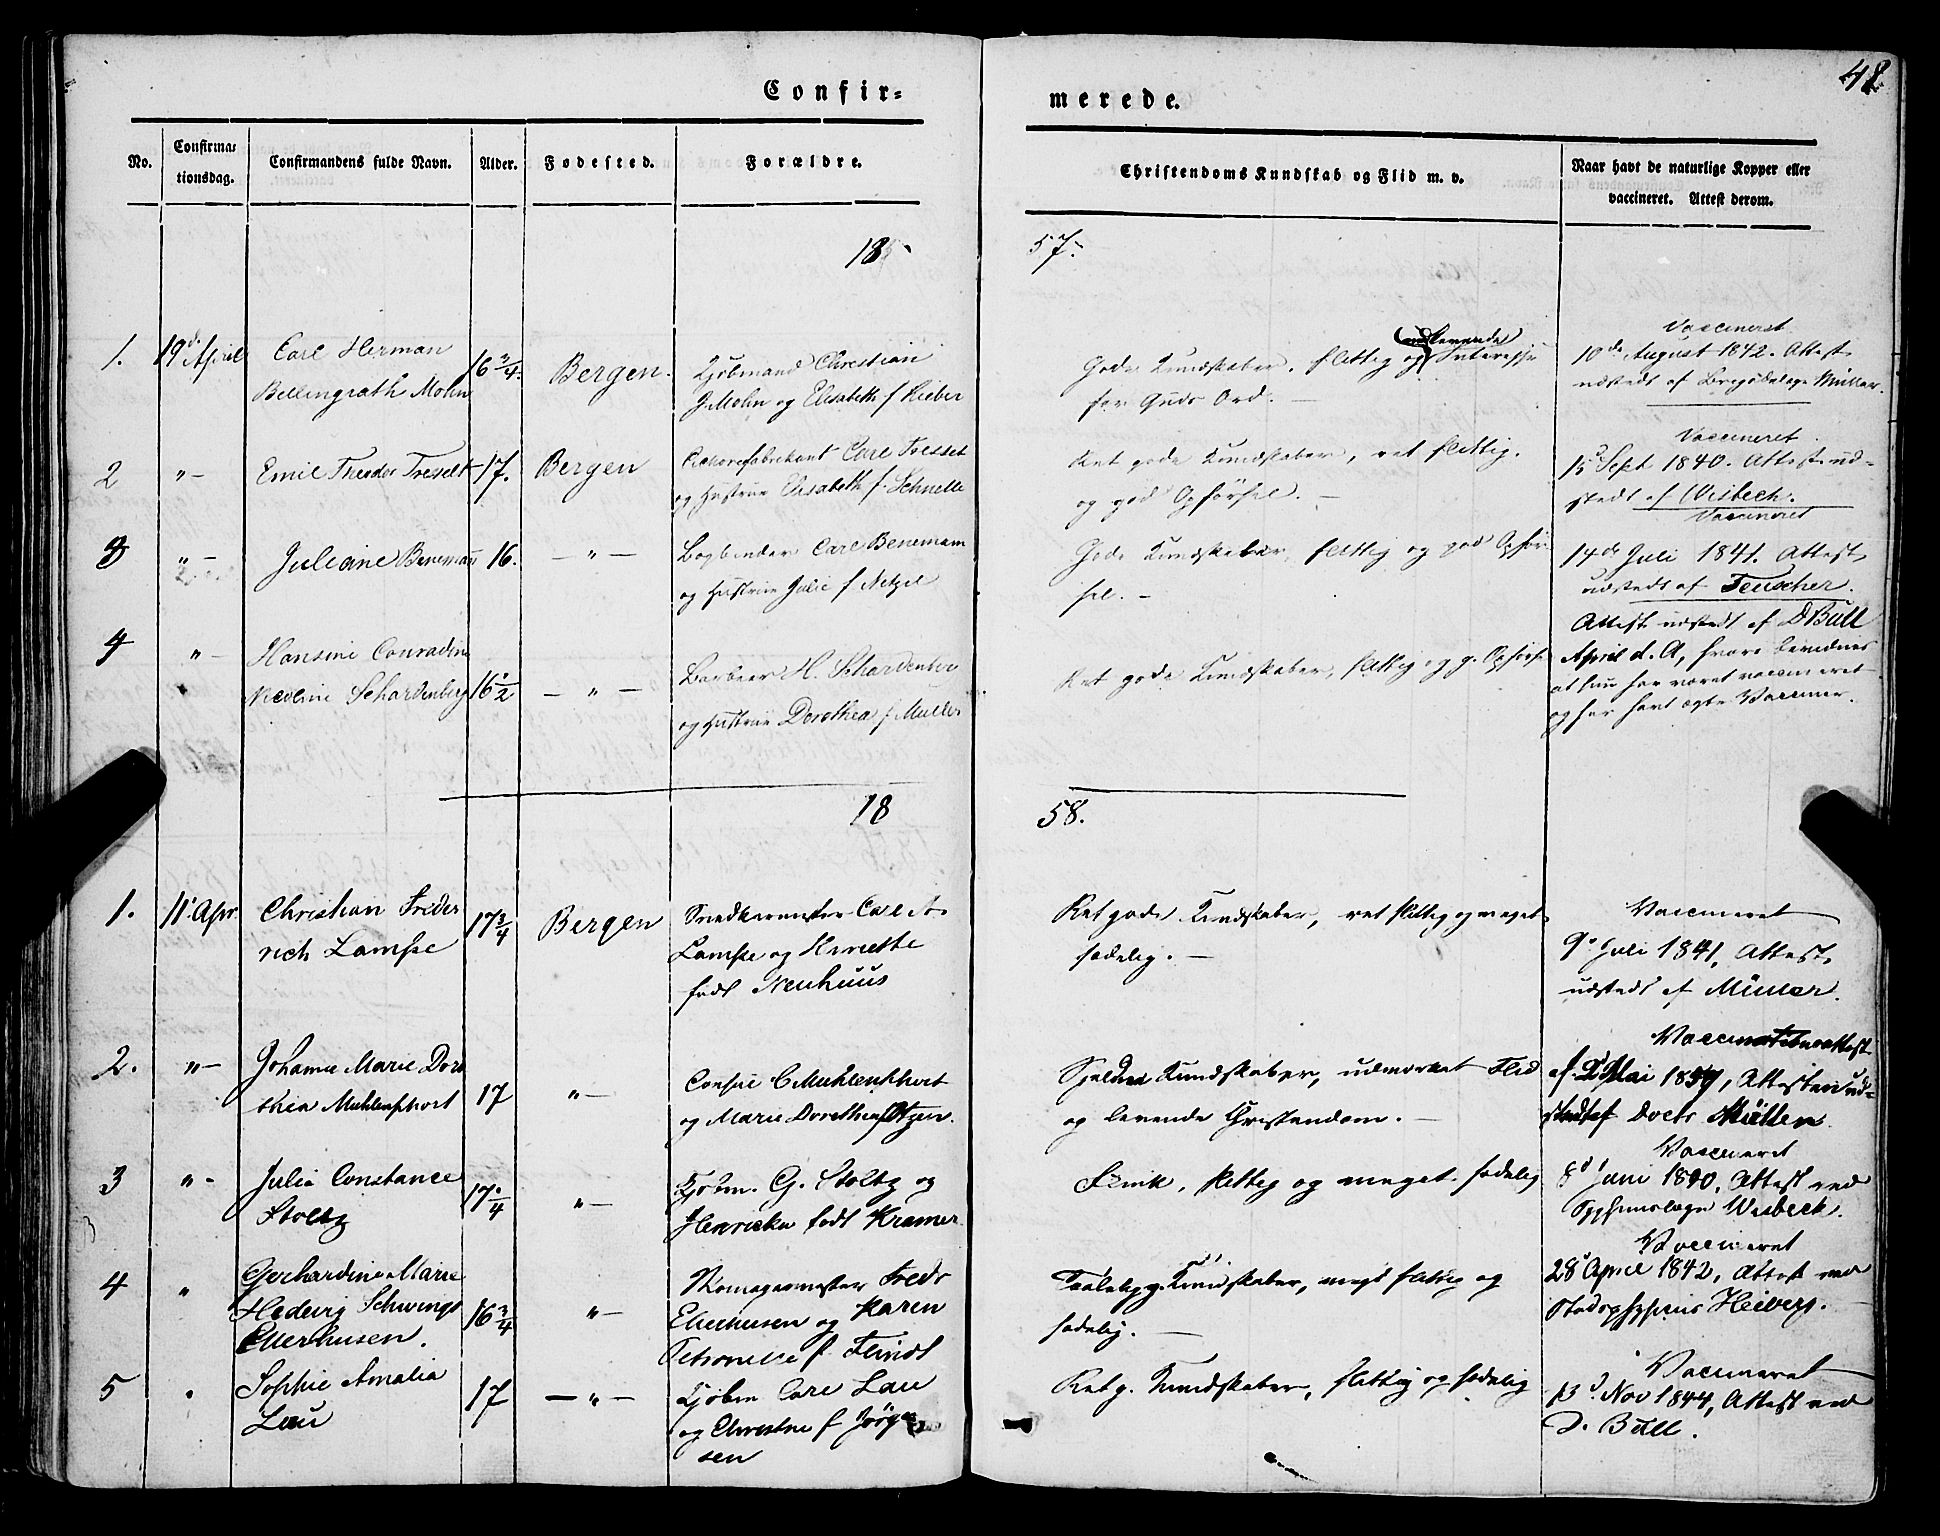 48.
Confir=
merede.
No.
Confirma=
tionsdag.
Confirmandens fulde Navn.
Alder.
Fødested.
Forældre.
Christendoms Kundskab og Flid m. v.
Naar havt de naturlige Kopper eller
vaccineret. Attest derom.
18
57.
1. 19d April Carl Herman
Bellingrath Mohn
16 3/4. Bergen.
Kjøbmand Christian
G Mohn og Elisabeth f Rieber
levende
Gode Kundskaber, flittig og Interesse
for Guds Ord. —
Vaccineret
10de August 1842. Attest
udstedt af Müller.
2 "— Emil Theodor Tresselt 17. Bergen
Cichorefabrikant Carl Tresselt
og Hustrue Elisabeth f. Schnelle
Ret gode Kundskaber, ret flittig.
og god Opførsel. —
Vaccineret
15 Sept 1840. Attest ud=
stedt af Wisbech.
3 "— Juliane Benemañ 16. — " —
Bogbinder Carl Benemann
og Hustrue Julie f Netzel
Gode Kundskaber, flittig og god Opfør
sel. —
Vaccineret
14de Juli 1841. Attest
udstedt af Teuscher.
4 "— Hansine Conradine
Nicoline Schardenberg 16 1/2 — " —
Barbeer H. Schardenber
og Hustrue Dorothea f Müller
Ret gode Kundskaber, flittig og g. Opførsel
Attest udstedt af D Bull
April d. A, hvori bevidnes
at hun har været vaccineret
og har havt ægte Vacciner.
18
58.
1. 11' Apr. Christian Frider
rich Lampe
17 3/4 Bergen
Snedkermester Carl A.
Lampe og Henriette
født Neuhuus
Ret gode Kundskaber, ret flittig og meget
sædelig. —
Vaccineret
9' Juli 1841, Attest
udstedt af Müller.
2. "— Johanne Marie Doro
thea Muhlenphort 17 "—
Consul C Muhlenphort
og Marie Dorothea f Otzen.
Sjeldne Kundskaber, udmærket Flid
og levende Christendom. —
Vaccinationsattest
af Mai 1857, Attesten ud=
stedt af Doctr Müller
3 "- Julie Constance
Stoltz
17 1/4 "—
Kjøbm. G. Stoltz og
Henricka født Kramer
Flink, flittig og meget sædelig
Vaccineret
8d Juni 1840, Attest ved
Wisbeck.
4 " Gerhardine Marie
Hedevig Schwings
Ellerhusen.
16 3/4 "—
Fredr
Ellerhusen og Karen
Petronelle f. Feindt
Kundskaber, meget flittig og
sædelig. —
Vaccineret
28' April 1842, Attest ved
Stadsphysicus Heiberg.
5 " Sophie Amalia
Lau
17 — " —
Kjøbm Carl Lau
og Christine f Jørgen
sen
Ret g. Kundskaber, flittig og sædelig
Vaccineret
13d Nov 1844, Attest ved
D. Bull.